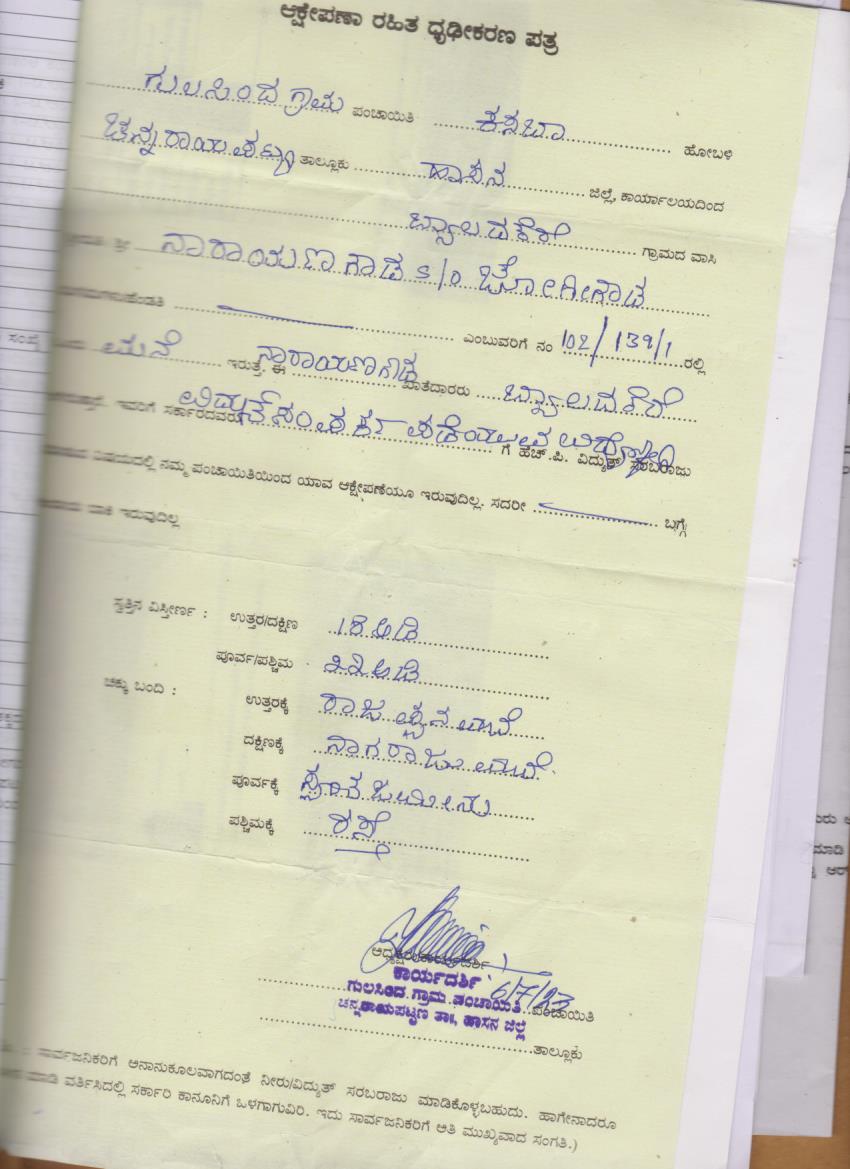 ಆಕ್ಷೇಪಣಾ ರಹಿತ ಧೃಢೀಕರಣ ಪತ್ರ
ಗುಲಸಿಂದ ಗ್ರಾಮ ಪಂಚಾಯಿತಿ ಕಸಬಾ ಹೋಬಳಿ
ಚನ್ನರಾಯಪಟ್ಟಣ ತಾಲ್ಲೂಕು ಹಾಸನ ಜಿಲ್ಲೆ, ಕಾರ್ಯಾಲಯದಿಂದ
ಬ್ಯಾಲದಕೆರೆ ಗ್ರಾಮದ ವಾಸಿ
ಶ್ರೀ ನಾರಾಯಣಗೌಡ S/O ಬೋಗೀಗೌಡ
ಎಂಬುವರಿಗೆ ನಂ 102/139/1 ರಲ್ಲಿ
ಮನೆ ಇರುತ್ತೆ. ಈ ನಾರಾಯಣಗೌಡ ಖಾತೆದಾರರು ಬ್ಯಾಲದಕೆರೆ
ಇವರಿಗೆ ಸರ್ಕಾರದವರು ಗೆ ಹೆಚ್.ಪಿ. ವಿದ್ಯುತ್ ಸರಬರಾಜು
ವಿಷಯದಲ್ಲಿ ನಮ್ಮ ಪಂಚಾಯಿತಿಯಿಂದ ಯಾವ ಆಕ್ಷೇಪಣೆಯೂ ಇರುವುದಿಲ್ಲ. ಸದರೀ ಬಗ್ಗೆ
ಬಾಕಿ ಇರುವುದಿಲ್ಲ
ಸ್ವತ್ತಿನ ವಿಸ್ತೀರ್ಣ : ಉತ್ತರ/ದಕ್ಷಿಣ 18 ಅಡಿ
ಪೂರ್ವ/ಪಶ್ಚಿಮ ೨೨ ಅಡಿ
ಚಕ್ಕು ಬಂದಿ : ಉತ್ತರಕ್ಕೆ ಮನೆ
ದಕ್ಷಿಣಕ್ಕೆ ನಾಗರಾಜು ಮನೆ
ಪೂರ್ವಕ್ಕೆ ಸ್ವಂತ ಜಮೀನು
ಪಶ್ಚಿಮಕ್ಕೆ ರಸ್ತೆ
ಅಧ್ಯಕ್ಷರು/ಕಾರ್ಯದರ್ಶಿ
ಕಾರ್ಯದರ್ಶಿ 6/7/23
ಗುಲಸಿಂದ ಗ್ರಾಮ ಪಂಚಾಯಿತಿ ಪಂಚಾಯಿತಿ
ಚನ್ನರಾಯಪಟ್ಟಣ ತಾಃ, ಹಾಸನ ಜಿಲ್ಲೆ
ತಾಲ್ಲೂಕು
ಸಾರ್ವಜನಿಕರಿಗೆ ಅನಾನುಕೂಲವಾಗದಂತೆ ನೀರು/ವಿದ್ಯುತ್ ಸರಬರಾಜು ಮಾಡಿಕೊಳ್ಳಬಹುದು. ಹಾಗೇನಾದರೂ
ಮಾಡಿ ವರ್ತಿಸಿದಲ್ಲಿ ಸರ್ಕಾರಿ ಕಾನೂನಿಗೆ ಒಳಗಾಗುವಿರಿ. ಇದು ಸಾರ್ವಜನಿಕರಿಗೆ ಅತಿ ಮುಖ್ಯವಾದ ಸಂಗತಿ.)